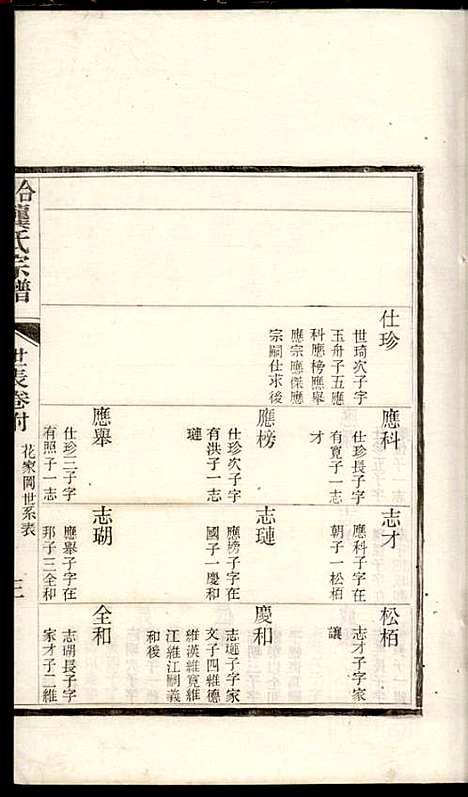 仕珍
世琦次子字
玉舟子五應
科應榜應舉
應宗應傑應
宗嗣仕求後
應科
仕珍長子字
有寬子一志
才
應榜
仕珍次子字
有洪子一志
璉
應舉
仕珍三子字
有照子一志
志才
應科子字在
朝子一松栢
志璉
應榜子字在
國子一慶和
志瑚
應舉子字在
邦子三全和
松栢
志才子字家
讓
慶和
志璉子字家
文子四維德
維漢維寬維
江維江嗣義
和後
全和
志瑚長子字
家才子二維
龔氏宗譜
世表卷附
花家岡世系表
三